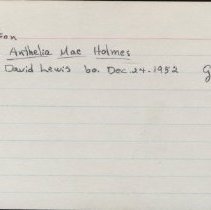 son
Anthelia Mae Holmes
David Lewis bo. Dec. 24. 1952 G